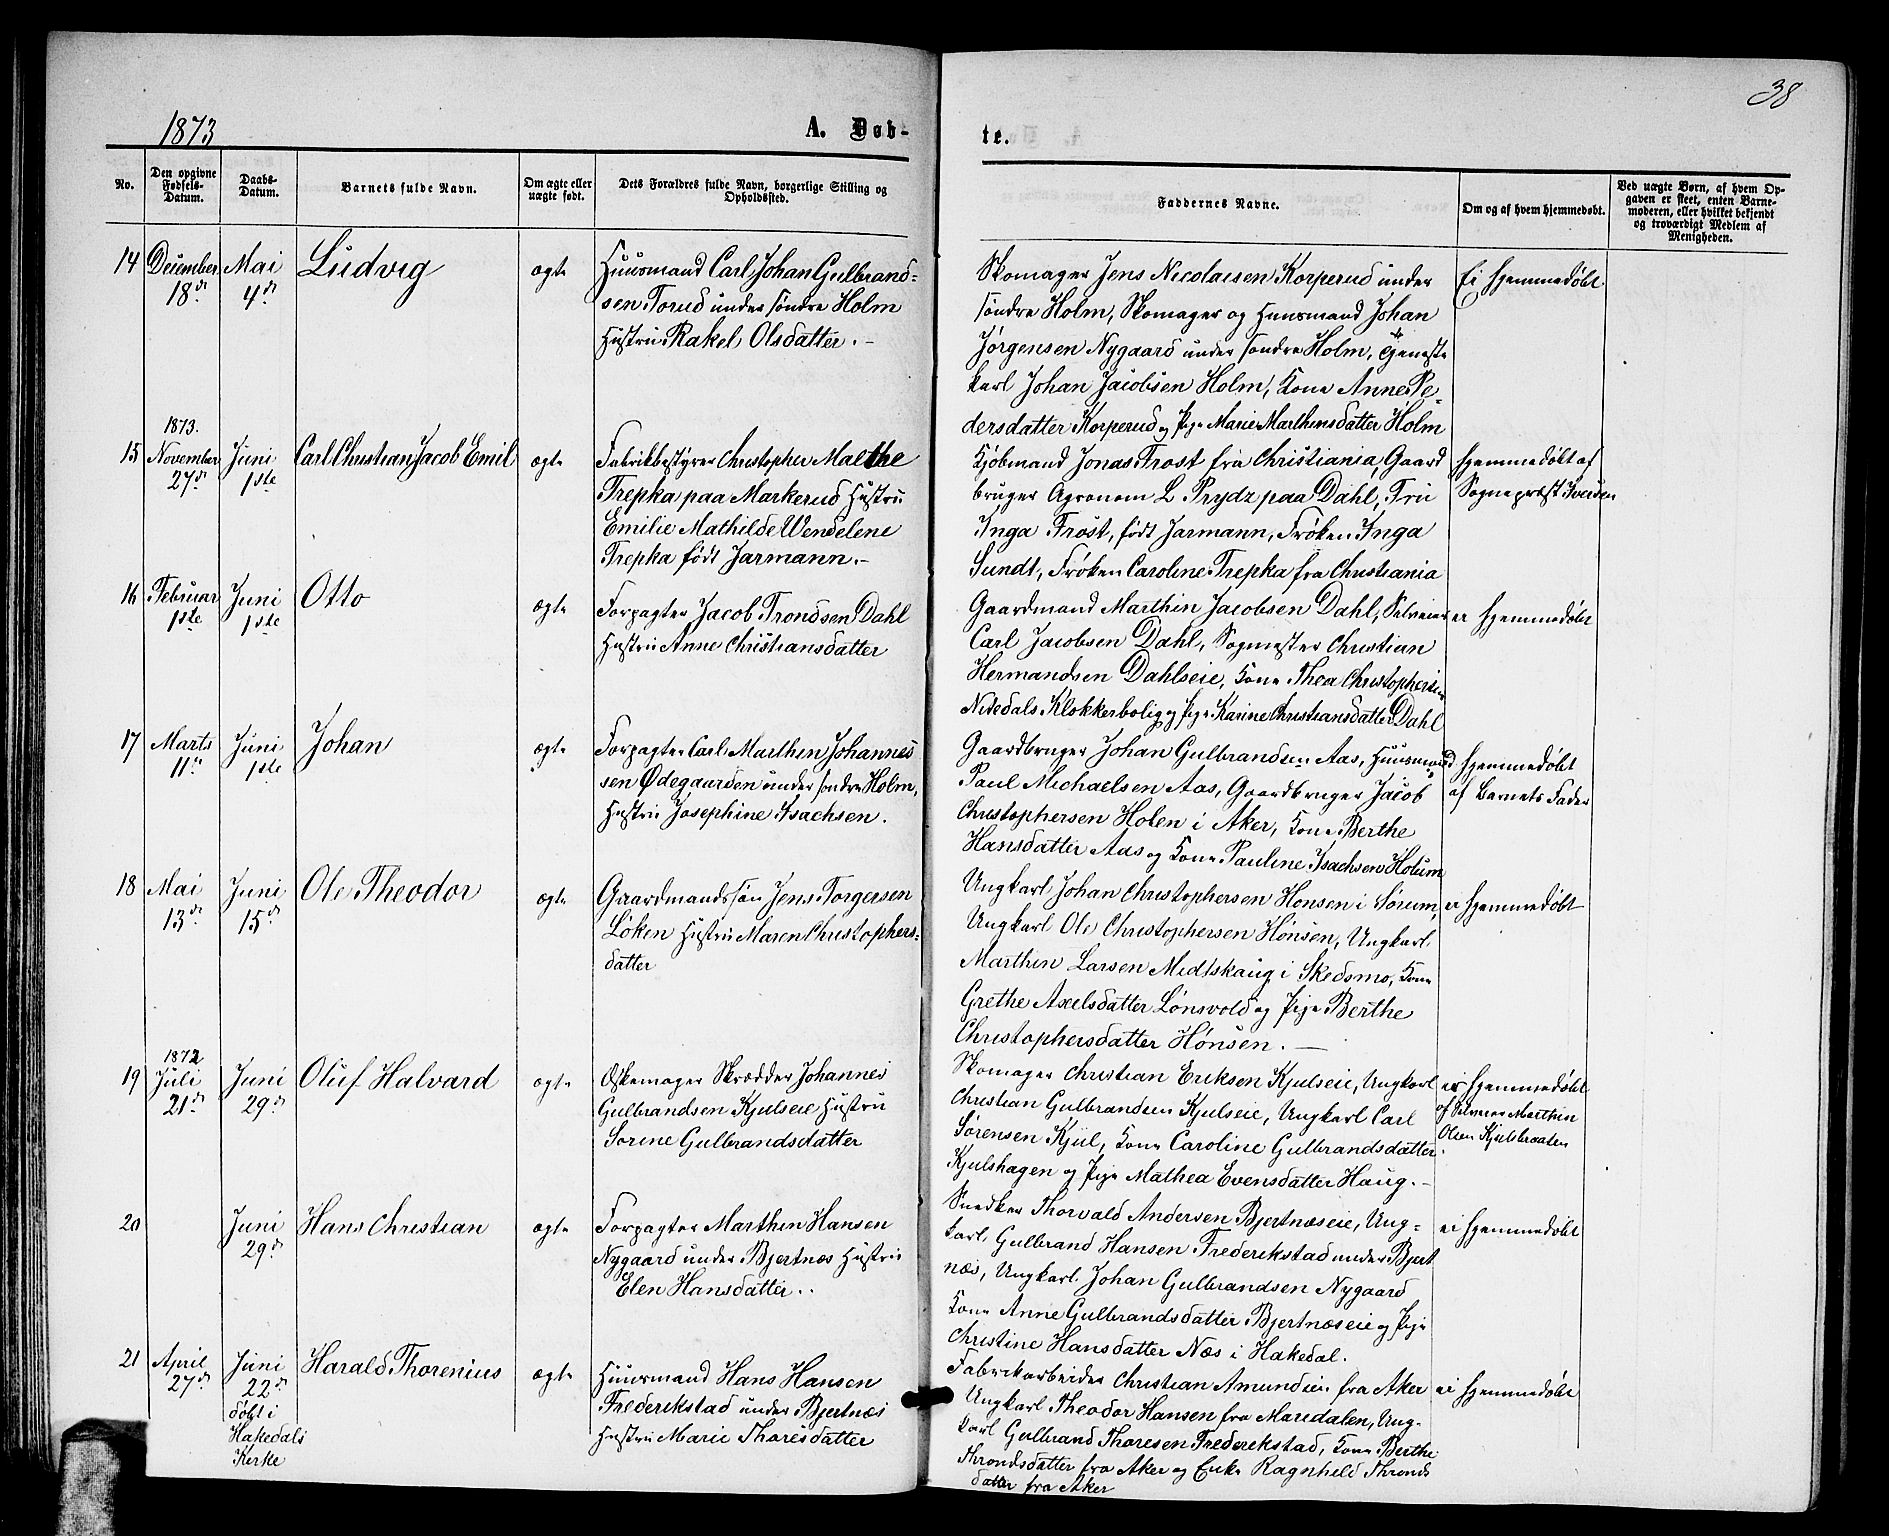 38
1873
A. Døb-
te.
No.
Den opgivne Fødsels-Datum.
Daabs-Datum.
Barnets fulde Navn.
Om ægte eller uægte født.
Dets Forældres fulde Navn, borgerlige Stilling og Opholdssted.
Faddernes Navne.
Om og af hvem hjemmedøbt.
Ved uægte Børn, af hvem Op-
gaven er skeet, enten Barne-
moderen, eller hvilket bekjendt
og troværdigt Medlem af
Menigheden.
14 December 18de
Mai 4de
Ludvig
ægte
Huusmand Carl Johan Gulbrand-
sen Torud under søndre Holm
Hustru Rakel Olsdatter.
Skomager Jens Nicolaisen Korperud under
søndre Holm, Skomager og Huusmand Johan
Jørgensen Nygaard under søndre Holm, Tjeneste
karl Johan Jacobsen Holm, Kone Anne Pe-
dersdatter Korperud og Pige Marie Marthinsdatter Holm
Ei hjemmedøbt
15 1873. November 27de
Juni 1ste
Carl Christian Jacob Emil
ægte
Fabrikbestyrer Christopher Malthe
Trepka paa Markerud Hustru
Emilie Mathilde Wendelene
Trepka født Jarmann.
Kjøbmand Jonas Frost fra Christiania, Gaard
bruger Agronom L Prydz paa Dahl, Fru
Inga Frost, født Jarmann, Frøken Inga
Sundt, Frøken Caroline Trepka fra Christiania
hjemmedøbt af
Sognepræst Iversen
16 Februar 1ste
Juni 1ste
Otto
ægte
Forpagter Jacob Trondsen Dahl
Hustru Anne Christiansdatter
Gaardmand Marthin Jacobsen Dahl, Selveier
Carl Jacobsen Dahl, Sagmester Christian
Hermandsen Dahlseie, Kone Thea Christophersen
Nitedals Klokkerbolig og Pige Karine Christiansdatter Dahl
ei hjemmedøbt
17 Marts 11te
Juni 1ste
Johan
ægte
Forpagter Carl Marthin Johannes
sen Ødegaarden under søndre Holm,
Hustru Josephine Isachsen.
Gaardbruger Johan Gulbrandsen Aas, Huusmand
Paul Michaelsen Aas, Gaardbruger Jacob
Christophersen Holen i Aker, Kone Berthe
Hansdatter Aas og Kone Pauline Isachsen Holum
hjemmedøbt
af Barnets Fader
18 Mai 13de
Juni 15de
Ole Theodor
ægte
Gaardmandssøn Jens Torgersen
Løken Hustru Maren Christophers-
datter
Ungkarl Johan Christophersen Hønsen i Sørum,
Ungkarl Ole Christophersen Hønsen, Ungkarl
Marthin Larsen Midtskaug i Skedsmo, Kone
Grethe Axelsdatter Lønsvold og Pige Berthe
Christophersdatter Hønsen.
ei hjemmedøbt
19 1872 Juli 21de
Juni 29de
Oluf Halvard
ægte
Æskemager Skrædder Johannes
Gulbrandsen Kjulseie Hustru
Sorine Gulbrandsdatter
Skomager Christian Eriksen Kjulseie, Ungkarl
Christian Gulbrandsen Kjulseie, Ungkarl Carl
Sørensen Kjul, Kone Caroline Gulbrandsdatter
Kjulshagen og Pige Mathea Evensdatter Haug.
er hjemmedøbt
af Selveier Marthin
Olsen Kjulsbraaten
20
Juni 29de
Hans Christian
ægte
Forpagter Marthin Hansen
Nygaard under Bjertnæs Hustru
Elen Hansdatter.
Snedker Thorvald Andersen Bjertnæseie, Ung-
karl Gulbrand Hansen Frederikstad under Bjert
næs, Ungkarl Johan Gulbrandsen Nygaard
Kone Anne Gulbrandsdatter Bjertnæseie og Pige
Christine Hansdatter Næs i Hakedal.
ei hjemmedøbt
21 April 27de
Juni 22de
døbt i
Hakedals
Kirke
Harald Thorenius
ægte
Huusmand Hans Hansen
Frederikstad under Bjertnæs
Hustru Marie Thoresdatter
Fabrikarbeider Christian Amundsen fra Aker
Ungkarl Theodor Hansen fra Maridalen, Ung-
karl Gulbrand Thoresen Frederikstad, Kone Berthe
Throndsdatter fra Aker og Enke Ragnheld Thronds
datter fra Aker
ei hjemmedøbt